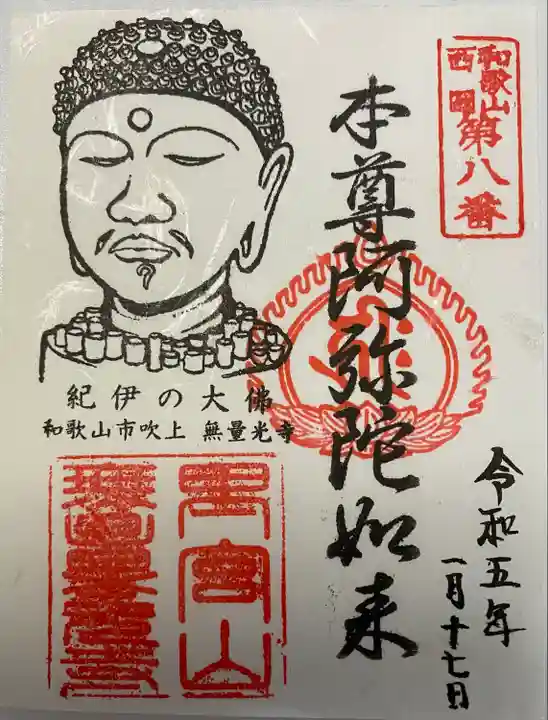 和歌山
西国
第八番
本尊阿弥陀如来
令和五年
一月十七日
紀伊の大佛
和歌山市吹上 無量光寺